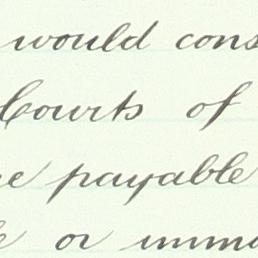 would cons
Courts of
payable
or imma